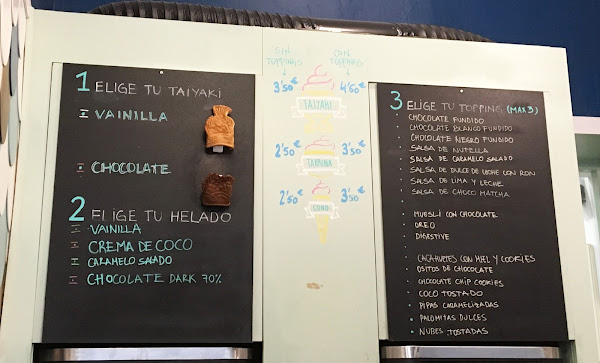 1 ELIGE TU TAIYAKI
I VAINILLA
I CHOCOLATE
2 ELIGE TU HELADO
I VAINILLA
I CREMA DE COCO
I CARAMELO SALADO
I CHOCOLATE DARK 70%
SIN TOPPINGS
CON TOPPINGS
3'50€ TAIYAKI 4'50€
2'50€ TARRINA 3'50€
2'50€ CONO 3'50€
3 ELIGE TU TOPPING (MAX 3)
CHOCOLATE FUNDIDO
CHOCOLATE BLANCO FUNDIDO
CHOCOLATE NEGRO FUNDIDO
SALSA DE NUTELLA
SALSA DE CARAMELO SALADO
SALSA DE DULCE DE LECHE CON RON
SALSA DE LIMA Y LECHE
SALSA DE CHOCO MATCHA
MUESLI CON CHOCOLATE
OREO
DIGESTIVE
CACAHUETES CON MIEL Y COOKIES
OSITOS DE CHOCOLATE
CHOCOLATE CHIP COOKIES
COCO TOSTADO
PIPAS CARAMELIZADAS
PALOMITAS DULCES
NUBES TOSTADAS